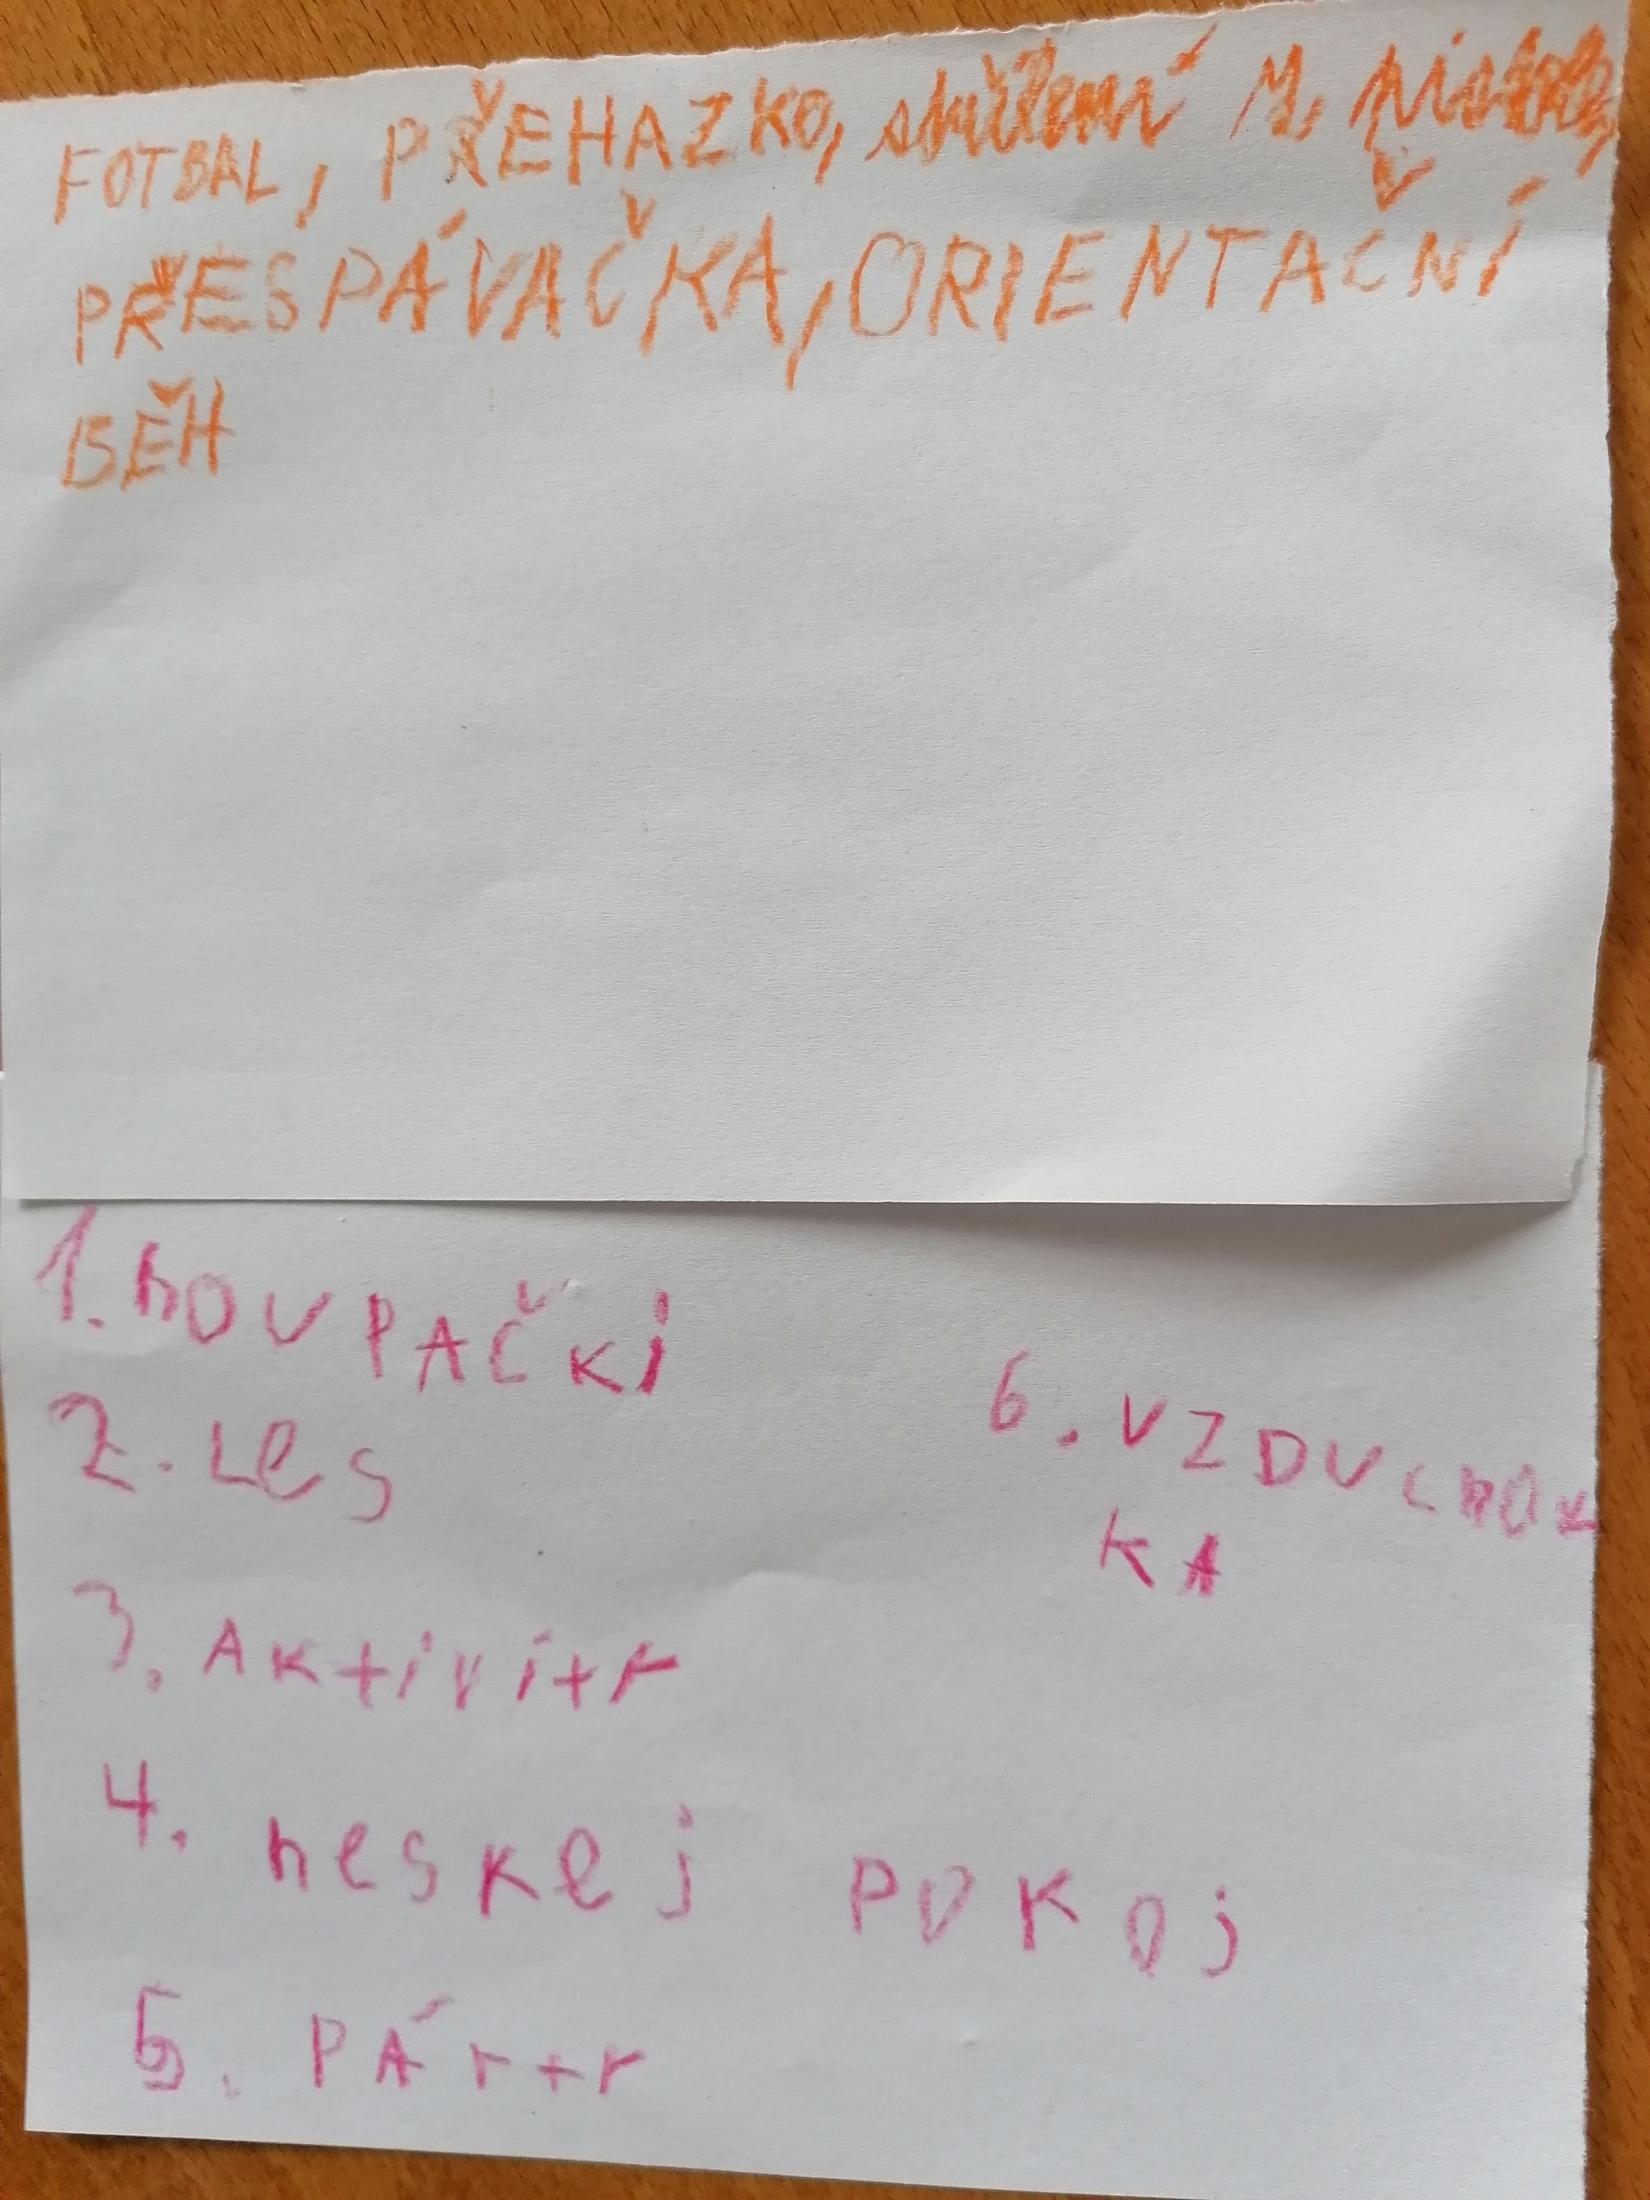 FOTBAL, PŘEHAZKO, střílení z pistole,
PŘESPÁVAČKA, ORIENTAČNÍ
BĚH
1. hOUPAČKi
2. Les
3. AKtivitY
4. heskej POKOj
5. PÁrtY
6. VZDUchOK
KA